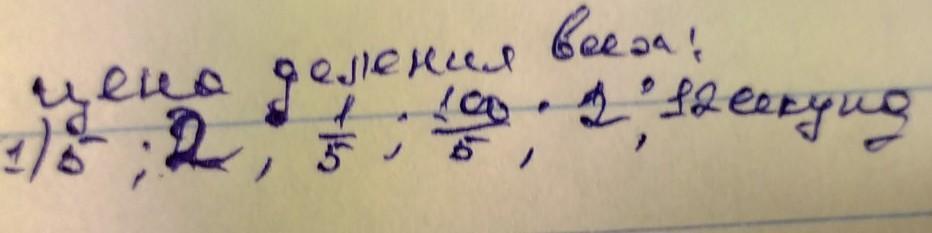 цена деления всех:
1) 5 ; 2 ; 1/5 ; 100/5 ; 2 ; 12 секунд